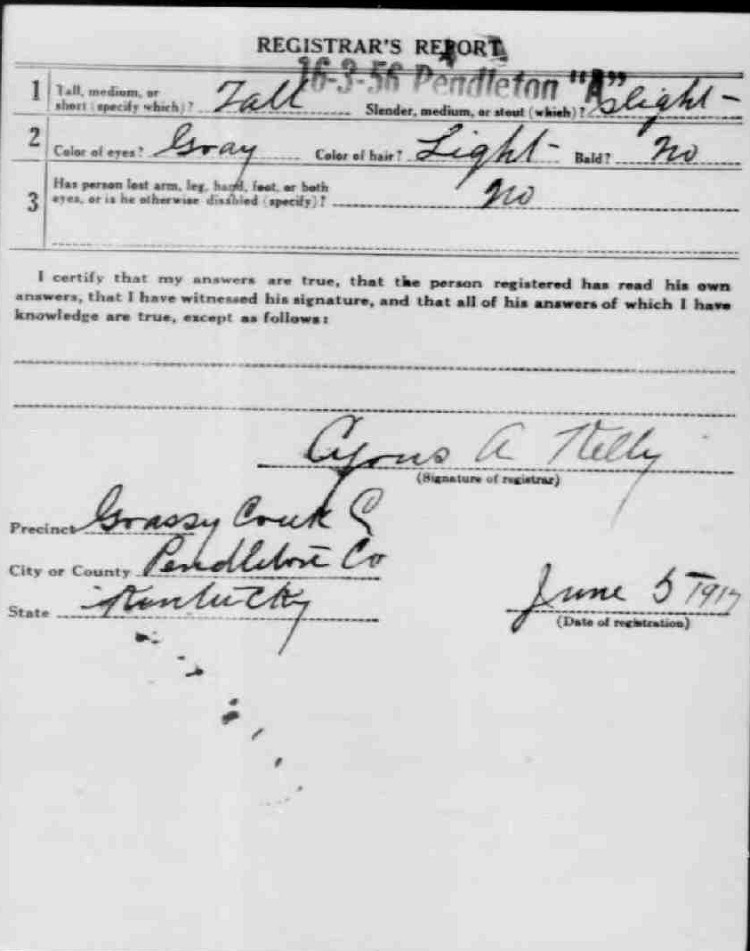 REGISTRAR'S REPORT
16-3-56 Pendleton "A"
1 Tall, medium, or short (specify which)? Tall Slender, medium, or stout (which)? Slight-
2 Color of eyes? Gray Color of hair? Light- Bald? No
3 Has person lost arm, leg, hand, foot, or both eyes, or is he otherwise disabled (specify)? No
I certify that my answers are true, that the person registered has read his own
answers, that I have witnessed his signature, and that all of his answers of which I have
knowledge are true, except as follows:
Cyrus A Kelly
(Signature of registrar)
Precinct Grassy Creek
City or County Pendleton Co
State Kentucky
June 5 1917
(Date of registration)